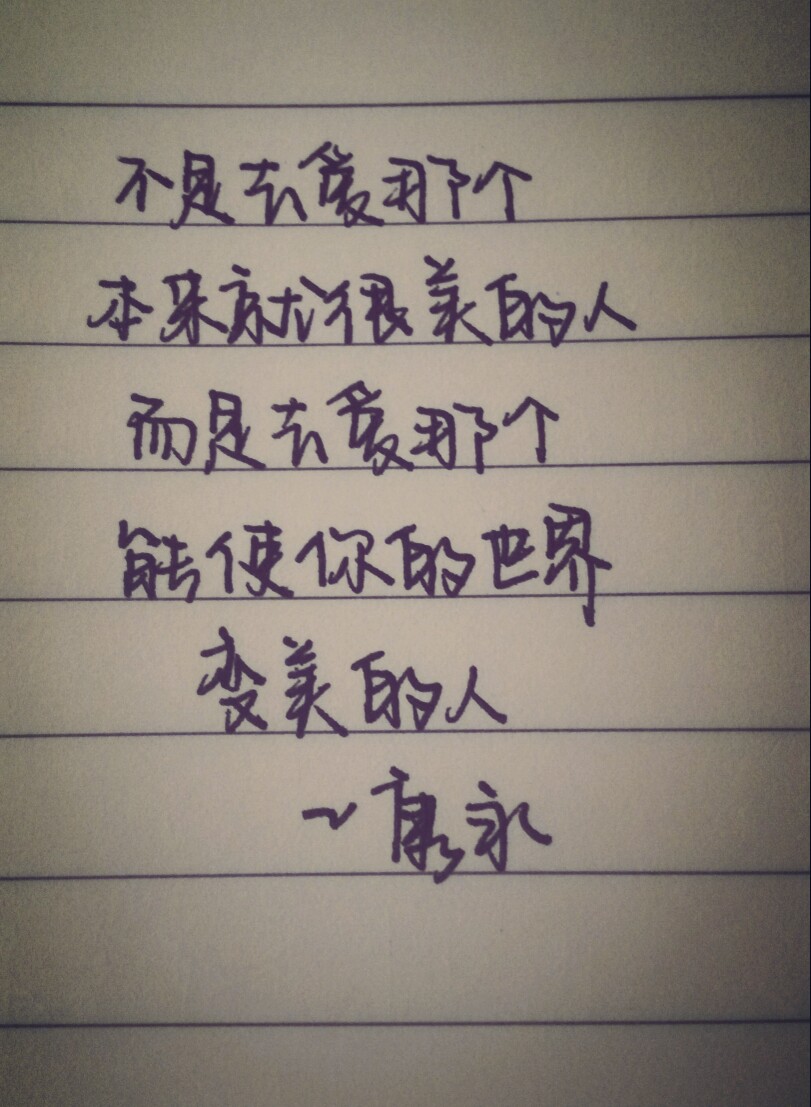 不是去爱那个
本来就很美的人
而是去爱那个
能使你的世界
变美的人
~康永